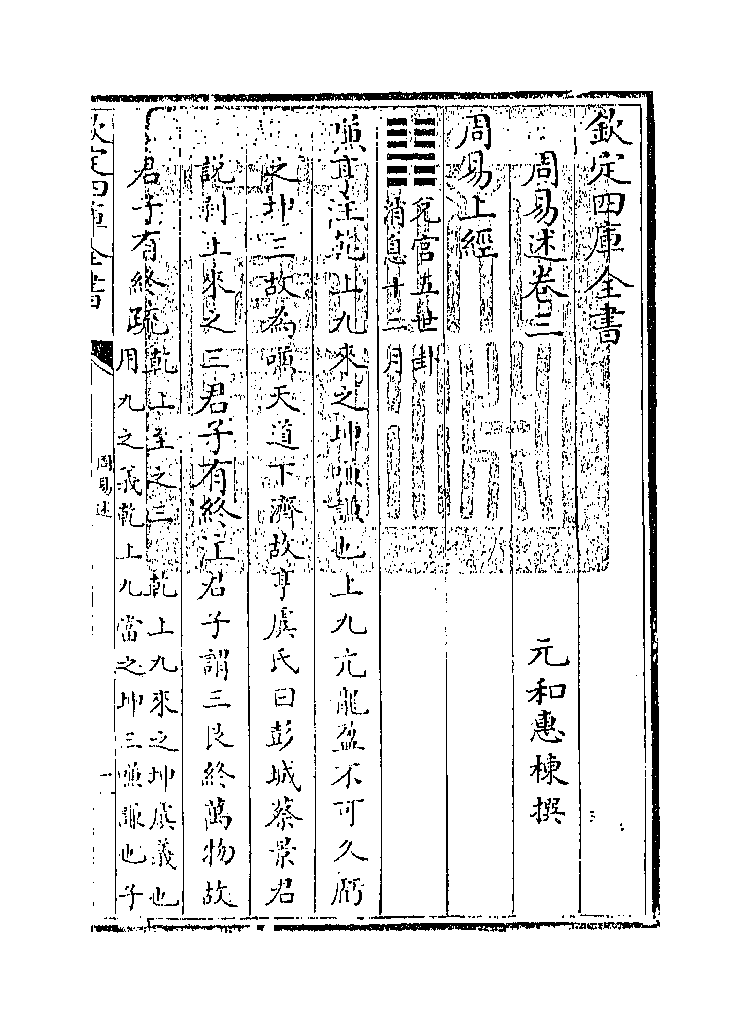 欽定四庫全書
周易述卷三
元和惠棟撰
周易上經
䷎兌宮五世卦
消息十二月
嗛亨注乾上九來之坤嗛謙也上九亢龍盈不可久虧
之坤三故為嗛天道下濟故亨虞氏曰彭城蔡景君
說剝上來之三君子有終注君子謂三艮終萬物故
君子有終疏乾上至之三 乾上九來之坤虞義也
用九之義乾上九當之坤三嗛謙也子
欽定四庫全書
周易述
一